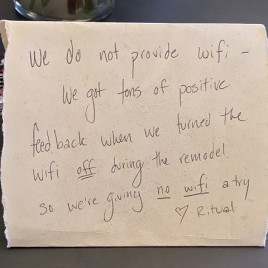 We do not provide wifi –
We got tons of positive
feedback when we turned the
wifi off during the remodel.
So we're giving no wifi a try
♡ Ritual